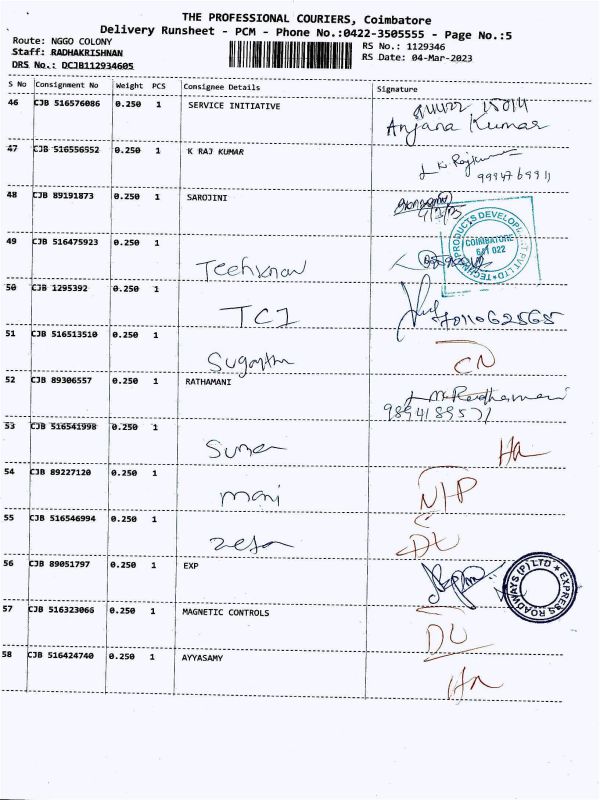 THE PROFESSIONAL COURIERS, Coimbatore
Delivery Runsheet - PCM - Phone No.:0422-3505555 - Page No.:5
Route: NGGO COLONY
RS No.: 1129346
Staff: RADHAKRISHNAN
RS Date: 04-Mar-2023
DRS No.: DCJB112934605
S No Consignment No Weight PCS Consignee Details Signature
46 CJB 516576086 0.250 1 SERVICE INITIATIVE
Anjana Kumar
47 CJB 516556552 0.250 1 K RAJ KUMAR
48 CJB 89191873 0.250 1 SAROJINI
49 CJB 516475923 0.250 1
PRODUCTS DEVELOP
COIMBATORE
641 022
50 CJB 1295392 0.250 1
TCI
51 CJB 516513510 0.250 1
CN
52 CJB 89306557 0.250 1 RATHAMANI
9894189571
53 CJB 516541998 0.250 1
54 CJB 89227120 0.250 1
mani
55 CJB 516546994 0.250 1
56 CJB 89051797 0.250 1 EXP
EXPRESS ROADWAYS (P) LTD
57 CJB 516323066 0.250 1 MAGNETIC CONTROLS
58 CJB 516424740 0.250 1 AYYASAMY